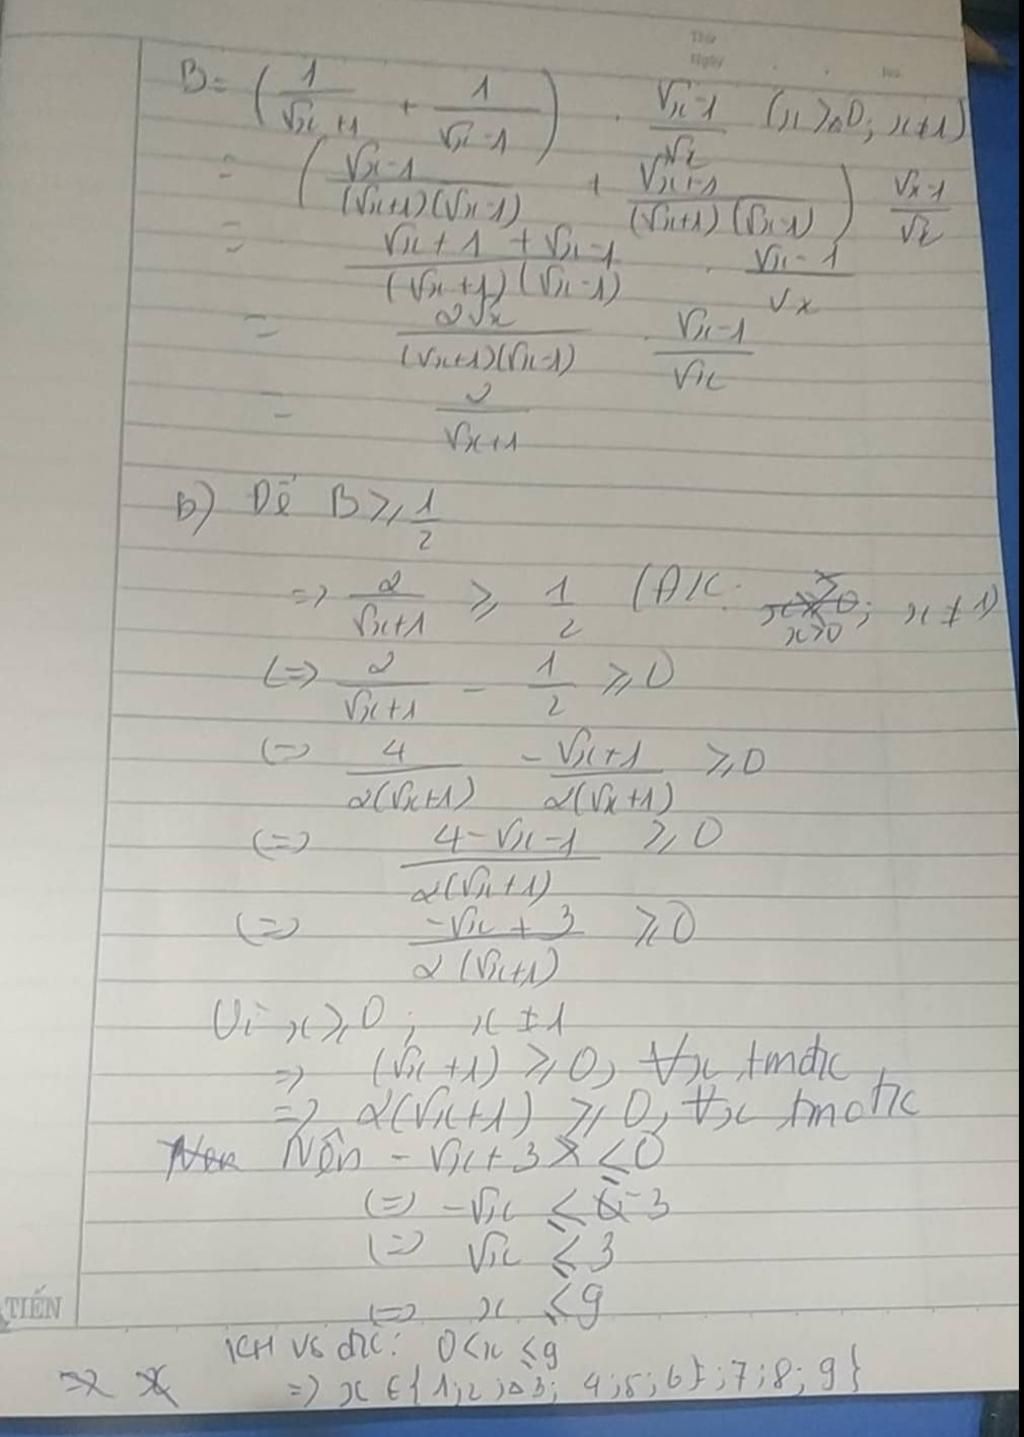 Thứ
Ngày No.
B = (1/(√x+1) + 1/(√x-1)) . (√x-1)/√x (x ≥ 0; x ≠ 1)
= ((√x-1)/((√x+1)(√x-1)) + (√x+1)/((√x+1)(√x-1))) (√x-1)/√x
= (√x+1+√x-1)/((√x+1)(√x-1)) . (√x-1)/√x
= 2√x/((√x+1)(√x-1)) . (√x-1)/√x
= 2/(√x+1)
b) Để B ≥ 1/2
=> 2/(√x+1) ≥ 1/2 (ĐK: x>0; x ≠ 1)
(=) 2/(√x+1) - 1/2 ≥ 0
(=) 4/(2(√x+1)) - (√x+1)/(2(√x+1)) ≥ 0
(=) (4-√x-1)/(2(√x+1)) ≥ 0
(=) (-√x+3)/(2(√x+1)) ≥ 0
Vì x ≥ 0; x ≠ 1
=> (√x+1) ≥ 0, ∀x tmđk
=> 2(√x+1) ≥ 0, ∀x tmđk
Nên -√x+3 ≤ 0
(=) -√x ≤ -3
(=) √x ≤ 3
(=) x ≤ 9
TIẾN
KH vs đk: 0<x ≤ 9
=> x ∈ {1;2;3; 4;5;6;7;8;9}